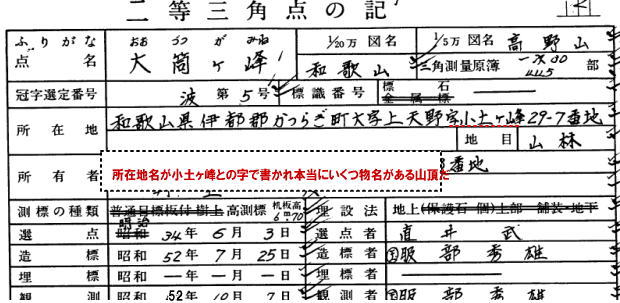 二等三角点の記
ふりがな おおつつがみね 1/20万 図名 1/5万 図名 高野山
点名 大筒ヶ峰 和歌山 三角測量原簿 部
冠字選定番号 波 第5号 標識番号 標石 金属標
所在地 和歌山県伊都郡かつらぎ町大字上天野字小土ヶ峰29-7番地
地目 山林
所有者 番地
所在地名が小土ヶ峰との字で書かれ本当にいくつ物名がある山頂だ
測標の種類 普通目標板付樹上 高測標 机板高 6m.70 埋設法 地上(保護石 個)上部 舗装・地下
選点 明治 昭和 34年6月3日 選点者 直井 武
造標 昭和 52年7月25日 造標者 服部秀雄
埋標 昭和 ー年ー月ー日 埋標者
観測 昭和 52年10月7日 観測者 服部秀雄